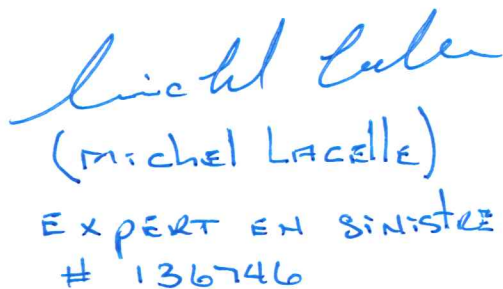 Michel Lacelle
(Michel Lacelle)
EXPERT EN SINISTRE
# 136746